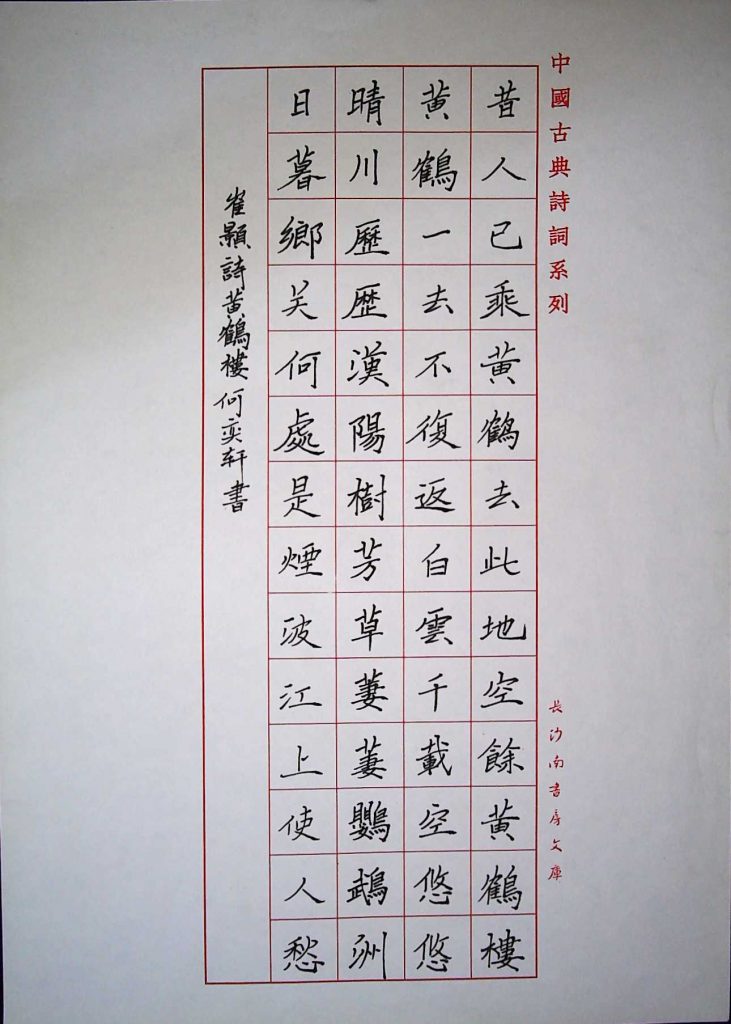 中國古典詩詞系列
長沙南書房文庫
昔人已乘黄鶴去此地空餘黄鶴樓
黄鶴一去不復返白雲千載空悠悠
晴川歷歷漢陽樹芳草萋萋鸚鵡洲
日暮鄉关何處是煙波江上使人愁
崔顥詩黄鶴樓何奕轩書